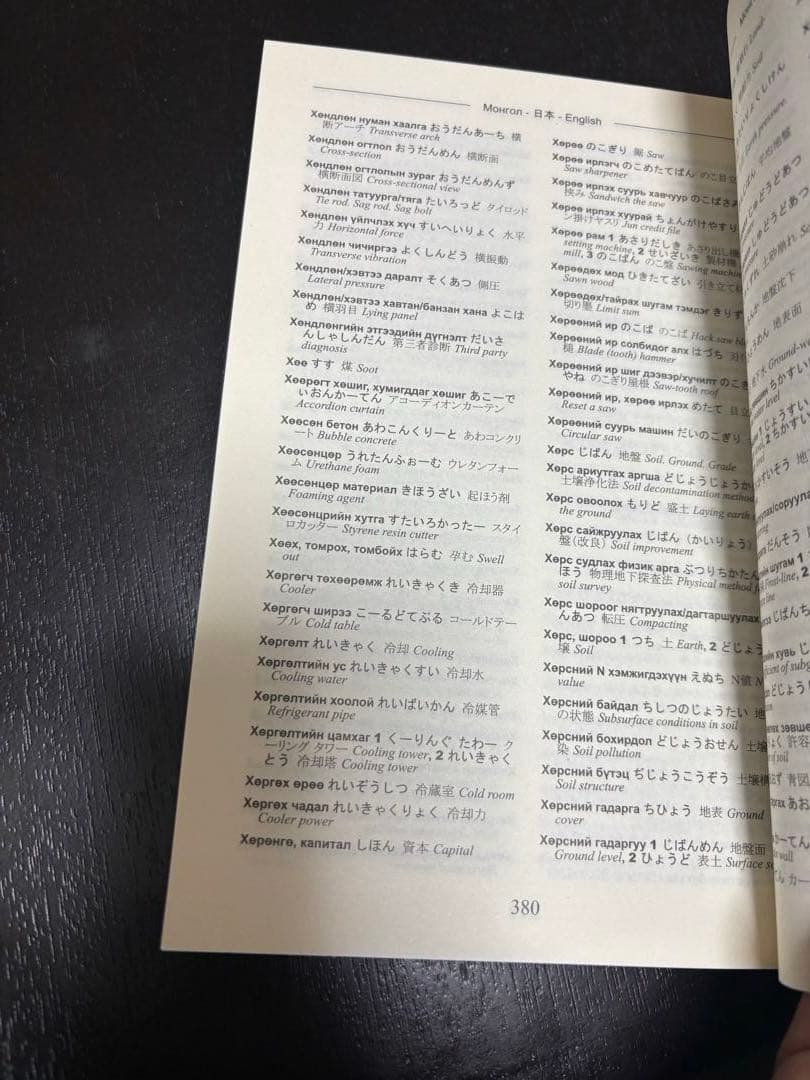 Монгол - 日本 - English
Хөндлөн нуман хаалга おうだんあーち 横
断アーチ Transverse arch
Хөндлөн огтлол おうだんめん 横断面
Cross-section
Хөндлөн огтлолын зураг おうだんめんず
横断面図 Cross-sectional view
Хөндлөн татуурга/тяга たいろっど タイロッド
Tie rod. Sag rod. Sag bolt
Хөндлөн үйлчлэх хүч すいへいりょく 水平
力 Horizontal force
Хөндлөн чичиргээ よくしんどう 横振動
Transverse vibration
Хөндлөн/хэвтээ даралт そくあつ 側圧
Lateral pressure
Хөндлөн/хэвтээ хавтан/банзан хана よこは
め 横羽目 Lying panel
Хөндлөнгийн этгээдийн дүгнэлт だいさ
んしゃしんだん 第三者診断 Third party
diagnosis
Хөө すす 煤 Soot
Хөөрөгт хөшиг, хумигддаг хөшиг あこーで
ぃおんかーてん アコーディオンカーテン
Accordion curtain
Хөөсөн бетон あわこんくりーと あわコンクリ
ート Bubble concrete
Хөөсөнцөр うれたんふぉーむ ウレタンフォー
ム Urethane foam
Хөөсөнцөр материал きほうざい 起ほう剤
Foaming agent
Хөөсөнцрийн хутга すたいろかったー スタイ
ロカッター Styrene resin cutter
Хөөх, томрох, томбойх はらむ 孕む Swell
out
Хөргөгч төхөөрөмж れいきゃくき 冷却器
Cooler
Хөргөгч ширээ こーるどてぶる コールドテー
ブル Cold table
Хөргөлт れいきゃく 冷却 Cooling
Хөргөлтийн ус れいきゃくすい 冷却水
Cooling water
Хөргөлтийн хоолой れいばいかん 冷媒管
Refrigerant pipe
Хөргөлтийн цамхаг 1 くーりんぐ たわー ク
ーリング タワー Cooling tower, 2 れいきゃく
とう 冷却塔 Cooling tower
Хөргөх өрөө れいぞうしつ 冷蔵室 Cold room
Хөргөх чадал れいきゃくりょく 冷却力
Cooler power
Хөрөнгө, капитал しほん 資本 Capital
Хөрөө のこぎり 鋸 Saw
Хөрөө ирлэгч のこめたてばん のこ目立
Saw sharpener
Хөрөө ирлэх суурь хавчуур のこばさみ
挟み Sandwich the saw
Хөрөө ирлэх хуурай ちょんがけやすり
ン掛けヤスリ Jun credit file
Хөрөө рам 1 あさりだしき あさり出し機
setting machine, 2 せいざいき 製材機
mill, 3 のこばん のこ盤 Sawing machine
Хөрөөдөх мод ひきたてざい 引き立て材
Sawn wood
Хөрөөдөх/тайрах шугам тэмдэг きりず
切り墨 Limit sum
Хөрөөний ир のこば のこば Hack saw bl
Хөрөөний ир солбидог алх はづち
槌 Blade (tooth) hammer
Хөрөөний ир шиг дээвэр/хучилт のこぎ
やね のこぎり屋根 Saw-tooth roof
Хөрөөний ир, хөрөө ирлэх めたて 目立
Reset a saw
Хөрөөний суурь машин だいのこぎり
Circular saw
Хөрс じばん 地盤 Soil. Ground. Grade
Хөрс ариутгах аргша どじょうじょうか
土壌浄化法 Soil decontamination method
Хөрс овоолох もりど 盛土 Laying earth
the ground
Хөрс сайжруулах じばん (かいりょう)
盤(改良) Soil improvement
Хөрс судлах физик арга ぶつりちかたん
ほう 物理地下探査法 Physical method
soil survey
Хөрс шороог нягтруулах/дагтаршуулах
んあつ 転圧 Compacting
Хөрс, шороо 1 つち 土 Earth, 2 どじょう
壌 Soil
Хөрсний N хэмжигдэхүүн えぬち N値 N
value
Хөрсний байдал ちしつのじょうたい 地
の状態 Subsurface conditions in soil
Хөрсний бохирдол どじょうおせん 土壌
染 Soil pollution
Хөрсний бүтэц ぢじょうこうぞう 土壌構
Soil structure
Хөрсний гадарга ちひょう 地表 Ground
cover
Хөрсний гадаргуу 1 じばんめん 地盤面
Ground level, 2 ひょうど 表土 Surface s
380